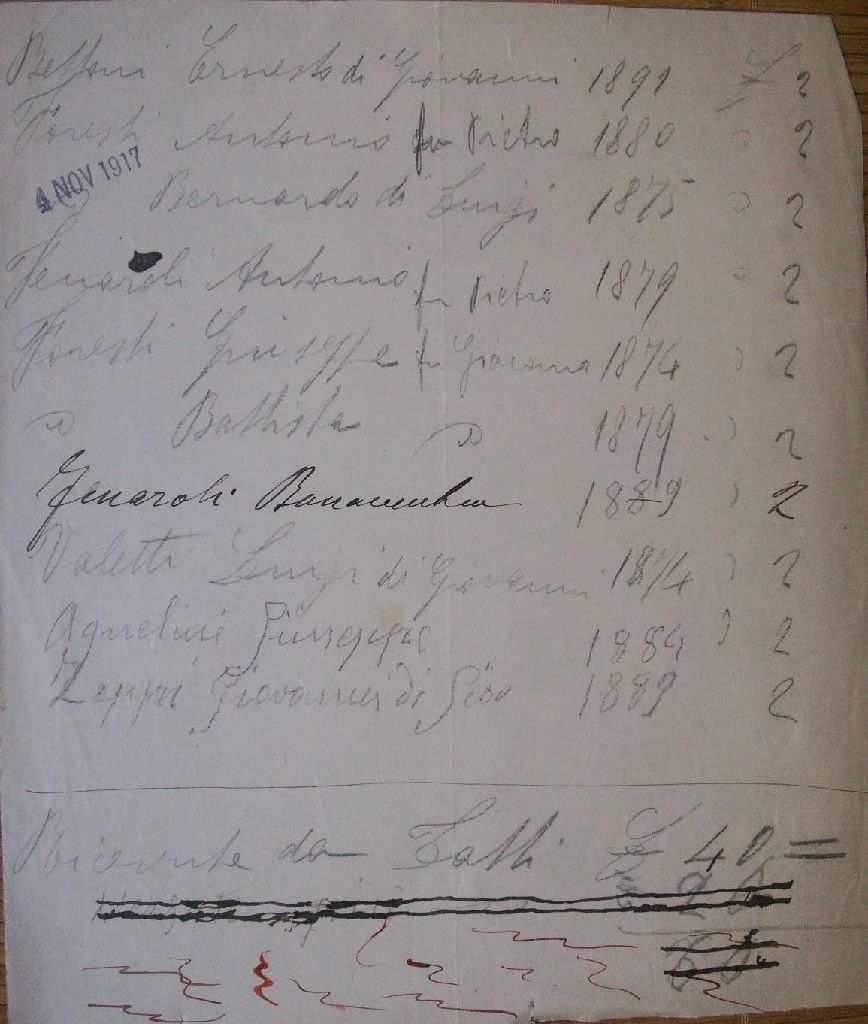 Bettoni Ernesto di Giovanni 1891 £ 2
Foresti Antonio fu Pietro 1880 " 2
4 NOV 1917
" Bernardo di Luigi 1875 " 2
Fenaroli Antonio fu Pietro 1879 " 2
Foresti Giuseppe fu Giacomo 1874 " 2
" Battista " 1879 " 2
Fenaroli 1889 " 2
Valetti Luigi di Giovanni 1874 " 2
Agnelini Giuseppe 1884 " 2
Zeppi Giovanni di 1889 2
Ricevute da Tatti £ 40 =